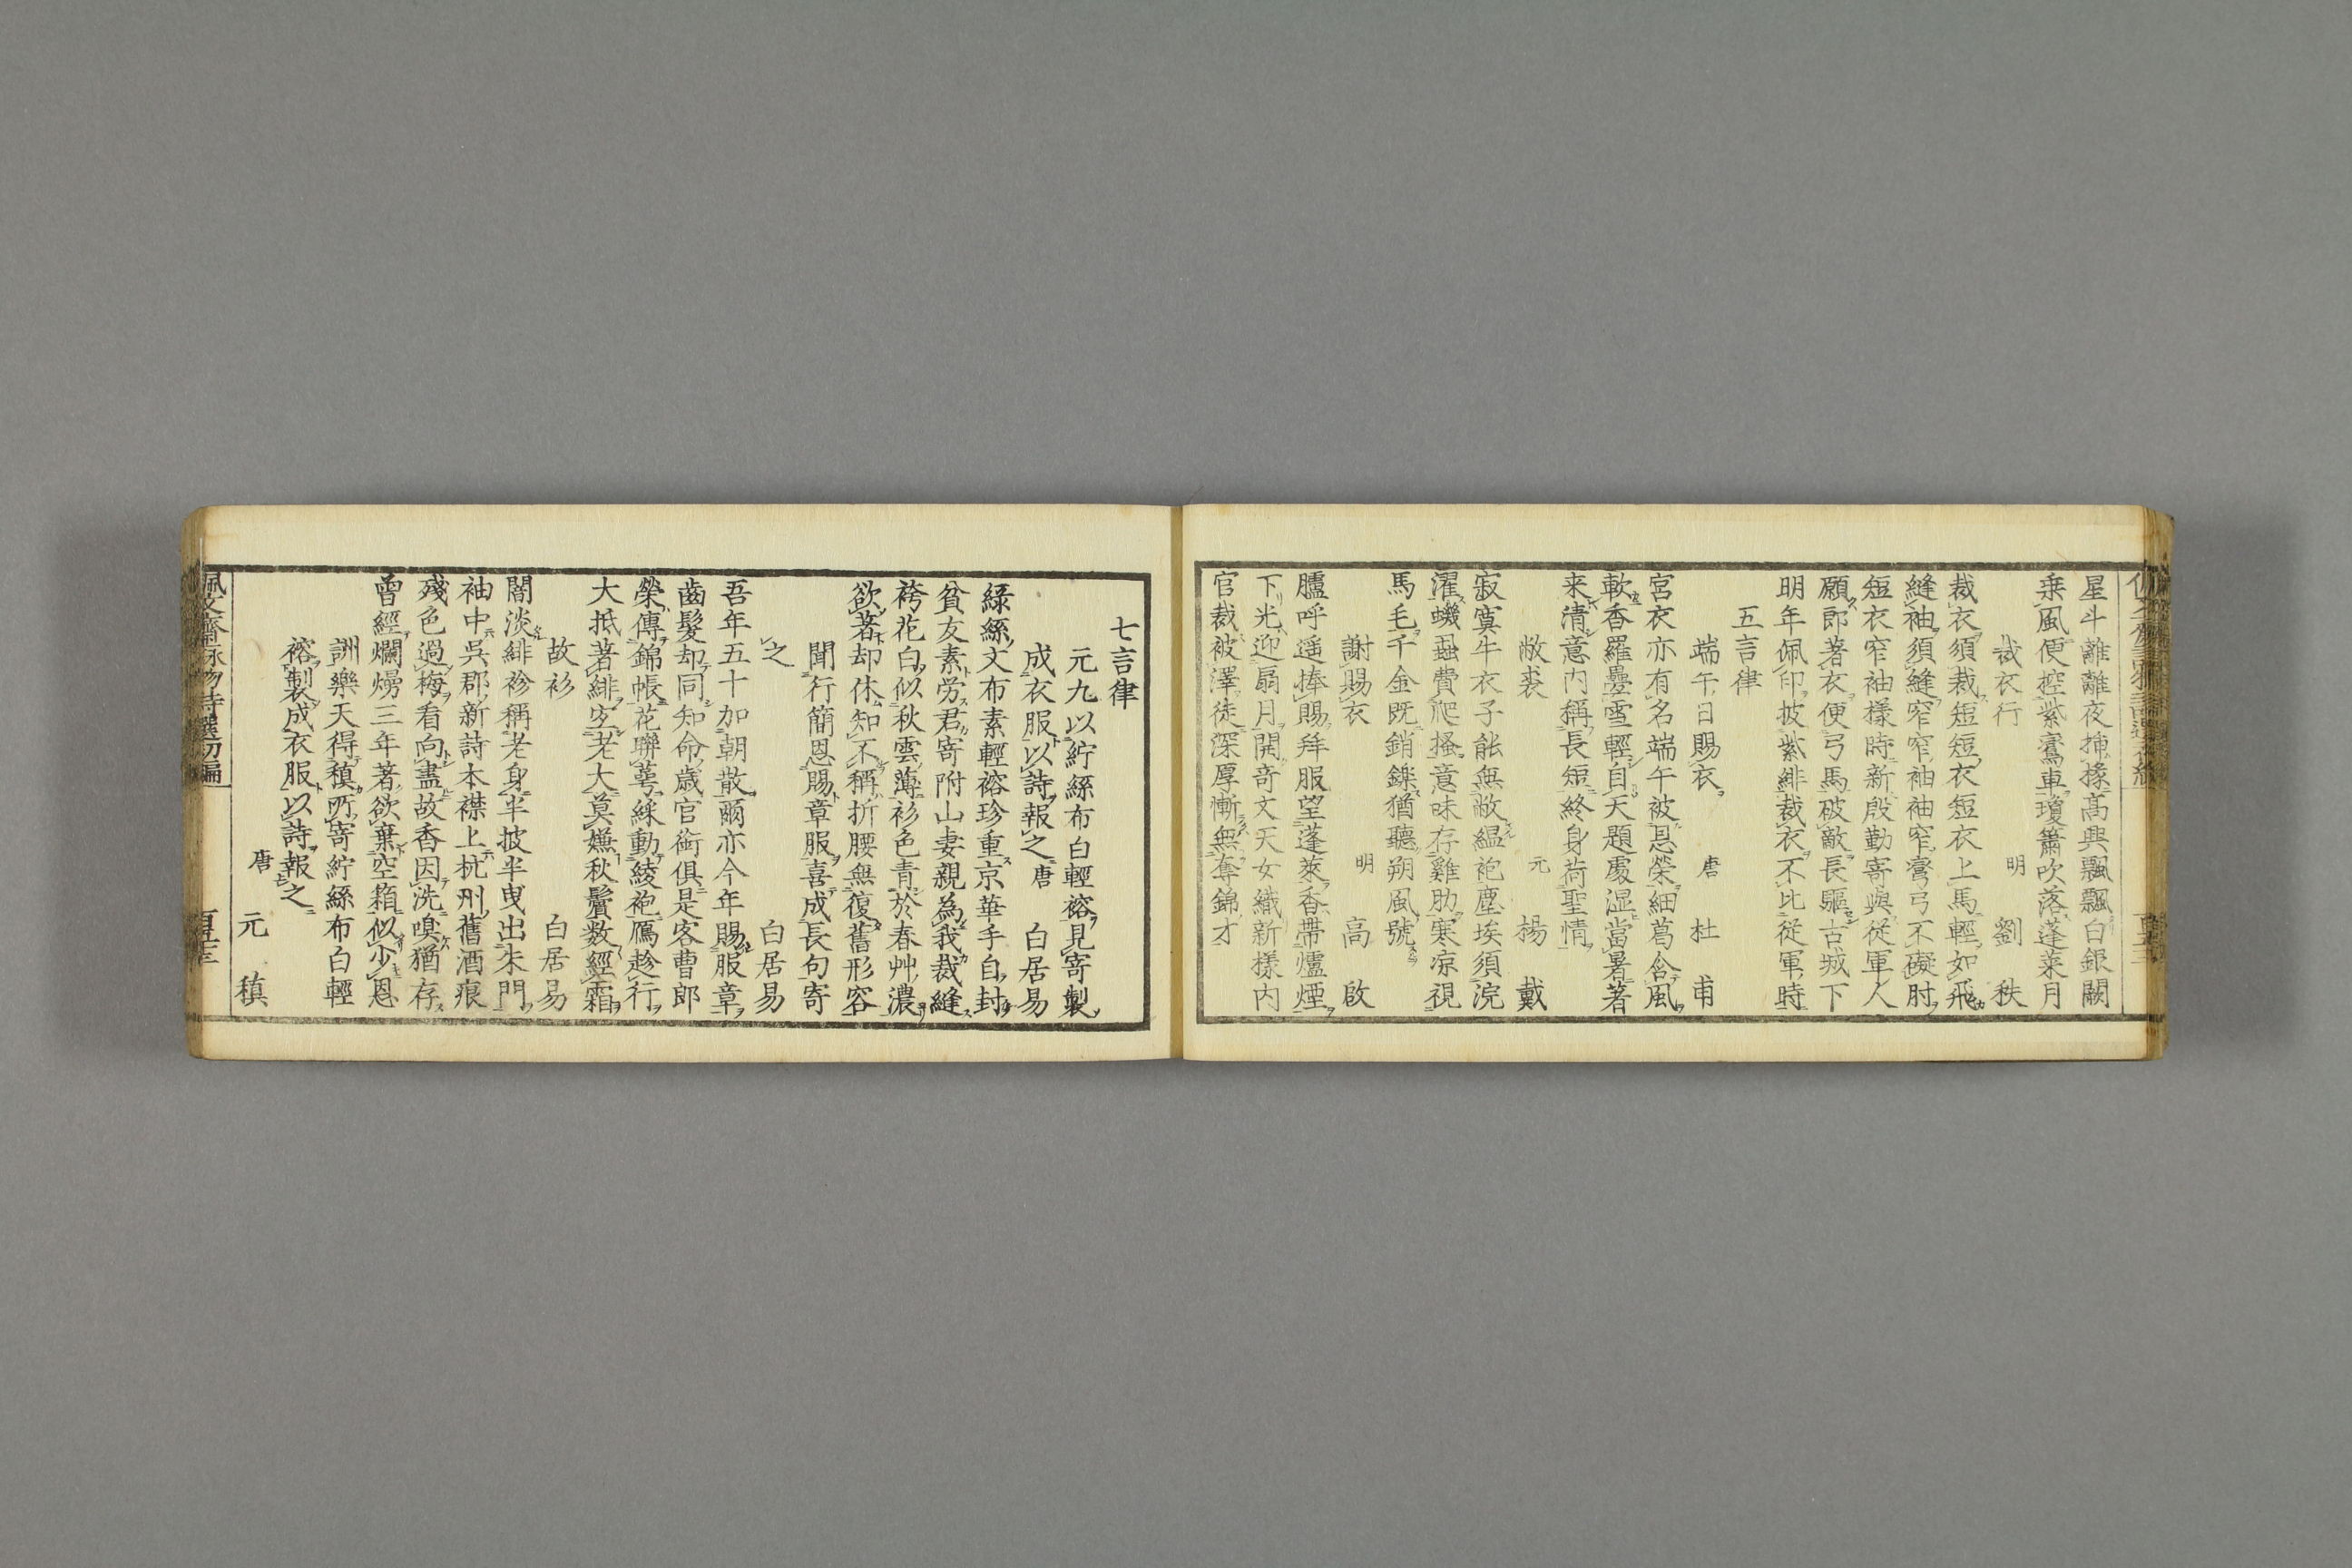 星斗離離夜捕掾高興飄飄白銀闕
乗風便控紫鸞車瓊簫吹落蓬莱月
裁衣行 明 劉秩
裁衣須裁短短衣短衣上馬輕如飛
縫袖須縫窄窄袖袖窄彎弓不礙肘
短衣窄袖様時新殷勤寄與從軍人
願郎著衣便弓馬破敵長驅古城下
明年佩印披紫緋裁衣不比從軍時
五言律
端午日賜衣 唐 杜甫
宮衣亦有名端午被恩榮細葛含風
軟香羅疊雪輕自天題處湿當暑著
来清意内稱長短終身荷聖情
敝裘 元 楊載
寂寞牛衣子能無敝縕袍塵埃須浣
濯蟣蝨費爬搔意味存雞肋寒凉視
馬毛千金既銷鑠猶聽朔風號
謝賜衣 明 高啟
臚呼遥捧賜拜服望蓬萊香帶爐煙
下光迎扇月開奇文天女織新様内
官裁被澤徒深厚慚無奪錦才
七言律
元九以紵絲布白輕褣見寄製
成衣服以詩報之 唐 白居易
緑絲文布素輕褣珍重京華手自封
貧友素労君寄附山妻親為我裁縫
袴花白似秋雲薄衫色青於春艸濃
欲著却休知不稱折腰無復舊形容
聞行簡恩賜章服喜成長句寄
之 白居易
吾年五十加朝散爾亦今年賜服章
齒髮却同知命歳官銜俱是客曹郎
榮傳錦帳花聯萼綵動綾袍鴈趁行
大抵著緋宜老大莫嫌秋鬢数經霜
故衫 白居易
闇淡緋衫稱老身半披半曳出朱門
袖中呉郡新詩本襟上杭州舊酒痕
殘色過梅看向盡故香因洗嗅猶存
曾經爛熳三年著欲棄空箱似少恩
詶樂天得稹所寄紵絲布白輕
褣製成衣服以詩報之
唐 元稹
佩文齋詠物詩選初編